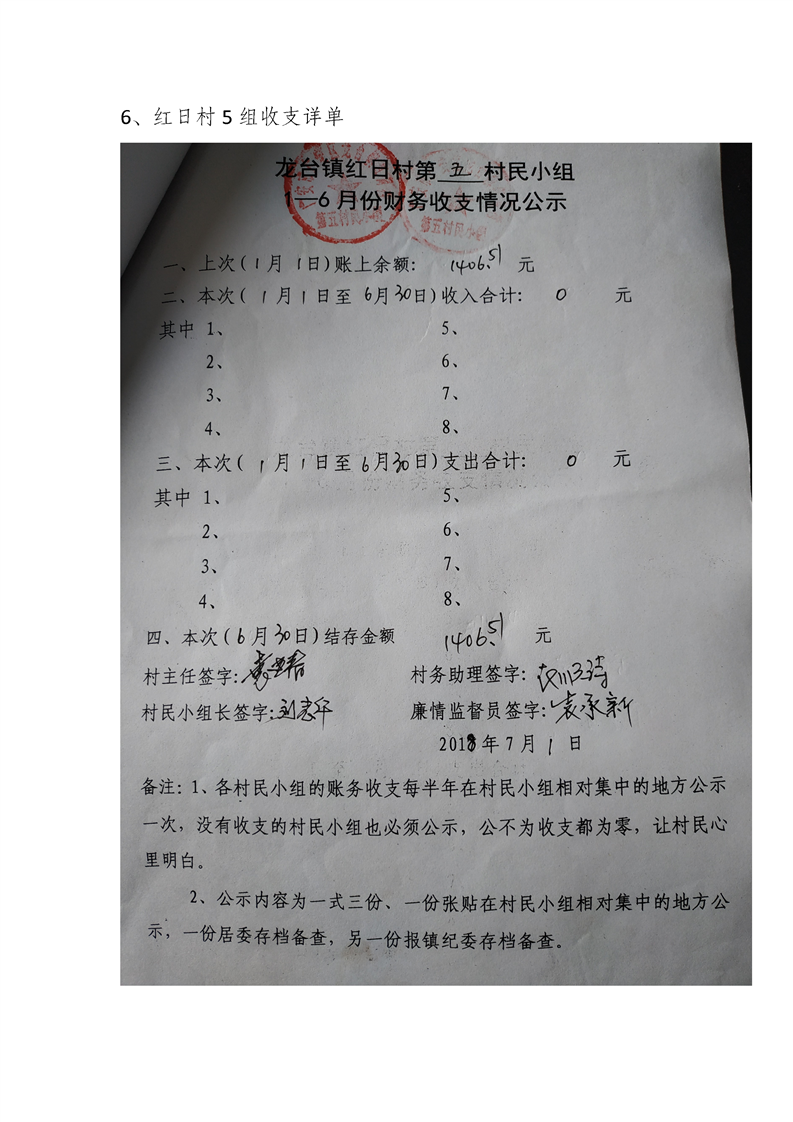 6、红日村 5 组收支详单
龙台镇红日村第 五 村民小组
1—6 月份财务收支情况公示
第五村民小组
第五村民小组
一、上次(1月 1日)账上余额: 1406.51 元
二、本次( 1月1日至 6月30日)收入合计: 0 元
其中 1、 5、
2、 6、
3、 7、
4、 8、
三、本次( 1月1日至 6月30日)支出合计: 0 元
其中 1、 5、
2、 6、
3、 7、
4、 8、
四、本次(6月30日)结存金额 1406.51 元
村主任签字: 村务助理签字:
村民小组长签字:刘志华 廉情监督员签字:袁承新
2018 年 7 月 1 日
备注: 1、各村民小组的账务收支每半年在村民小组相对集中的地方公示
一次，没有收支的村民小组也必须公示，公不为收支都为零，让村民心
里明白。
2、公示内容为一式三份、一份张贴在村民小组相对集中的地方公
示，一份居委存档备查，另一份报镇纪委存档备查。